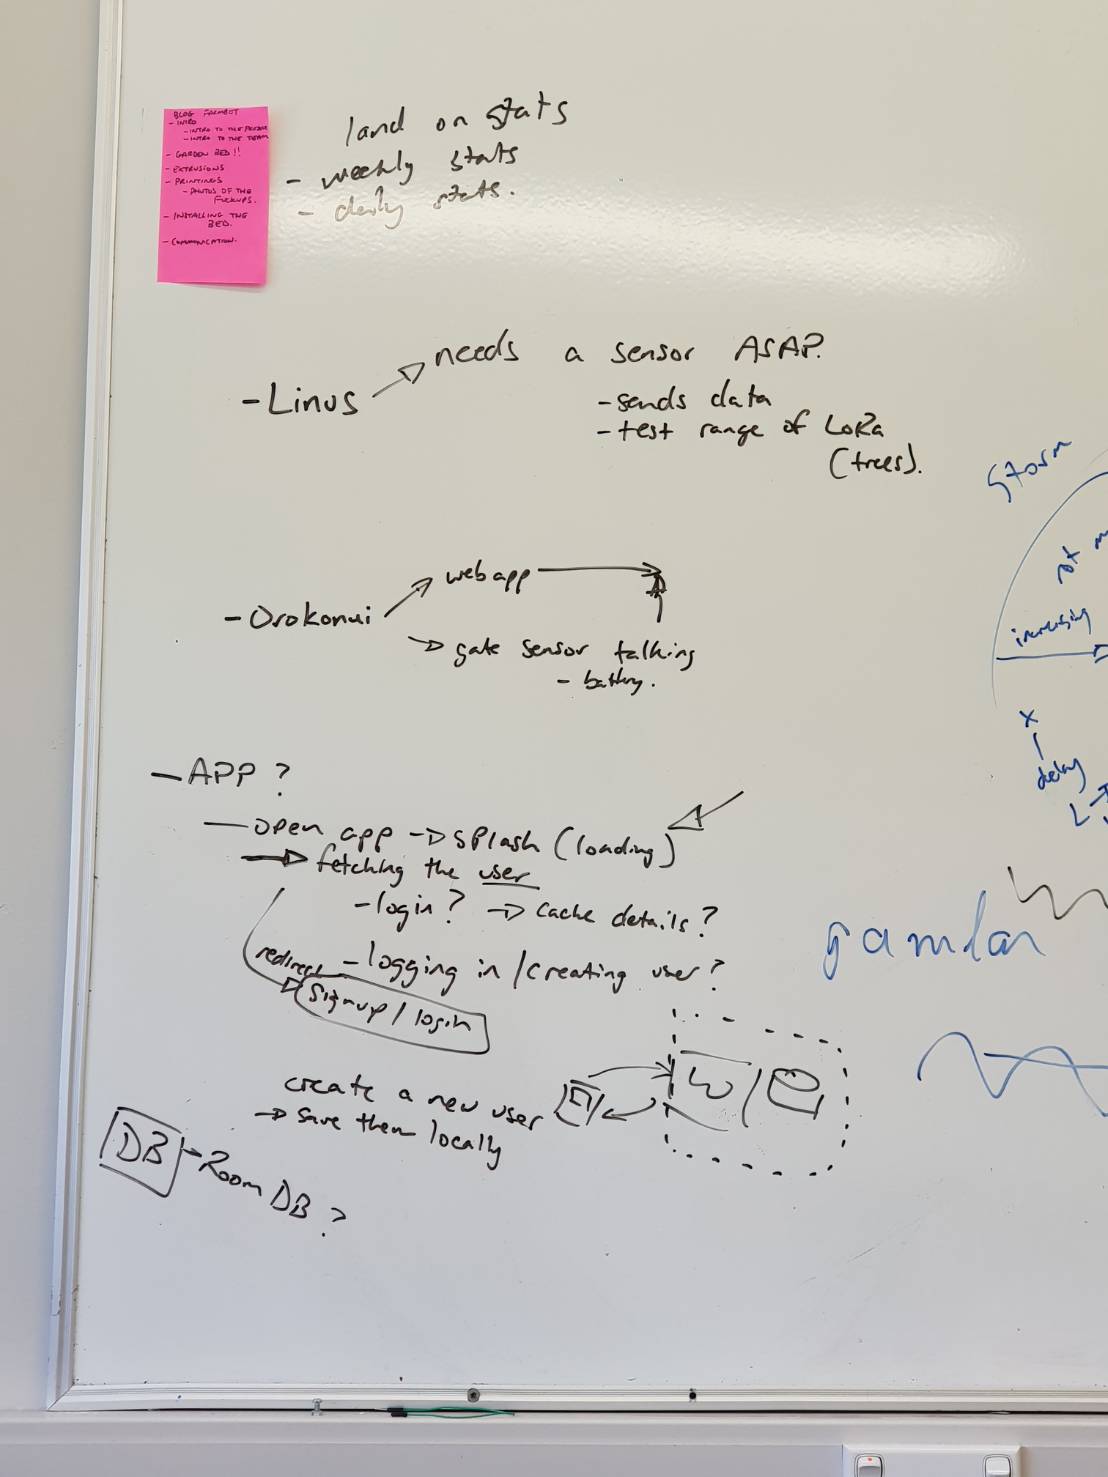 BLOG FARMBOT
- INTRO
- INTRO TO THE
- INTRO TO THE TEAM
- GARDEN BED!!
- EXTRUSIONS
- PRINTINGS
- PHOTOS OF THE
FUCKUPS.
- INSTALLING THE
BED.
- COMMUNICATION.
land on stats
- weekly stats
- daily stats.
- Linus
needs a sensor ASAP.
- sends data
- test range of LoRa
(trees).
- Orokonui
webapp
gate sensor talking
- battery.
- APP?
- open app → splash (loading)
→ fetching the user
- login? → cache details?
redirect
- logging in / creating user?
Signup / login
create a new user
→ save them locally
DB
Room DB?
W
Storm
not
increasing
x
delay
gamlan